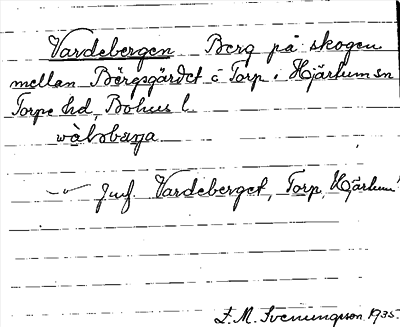 Vardebergen Berg på skogen
mellan Bärgsgärdet å Torp i Hjärtum sn
Torpe hd, Bohus l.
– " – Jmf. Vardeberget, Torp, Hjärtum
F. M. Sveningson 1935.